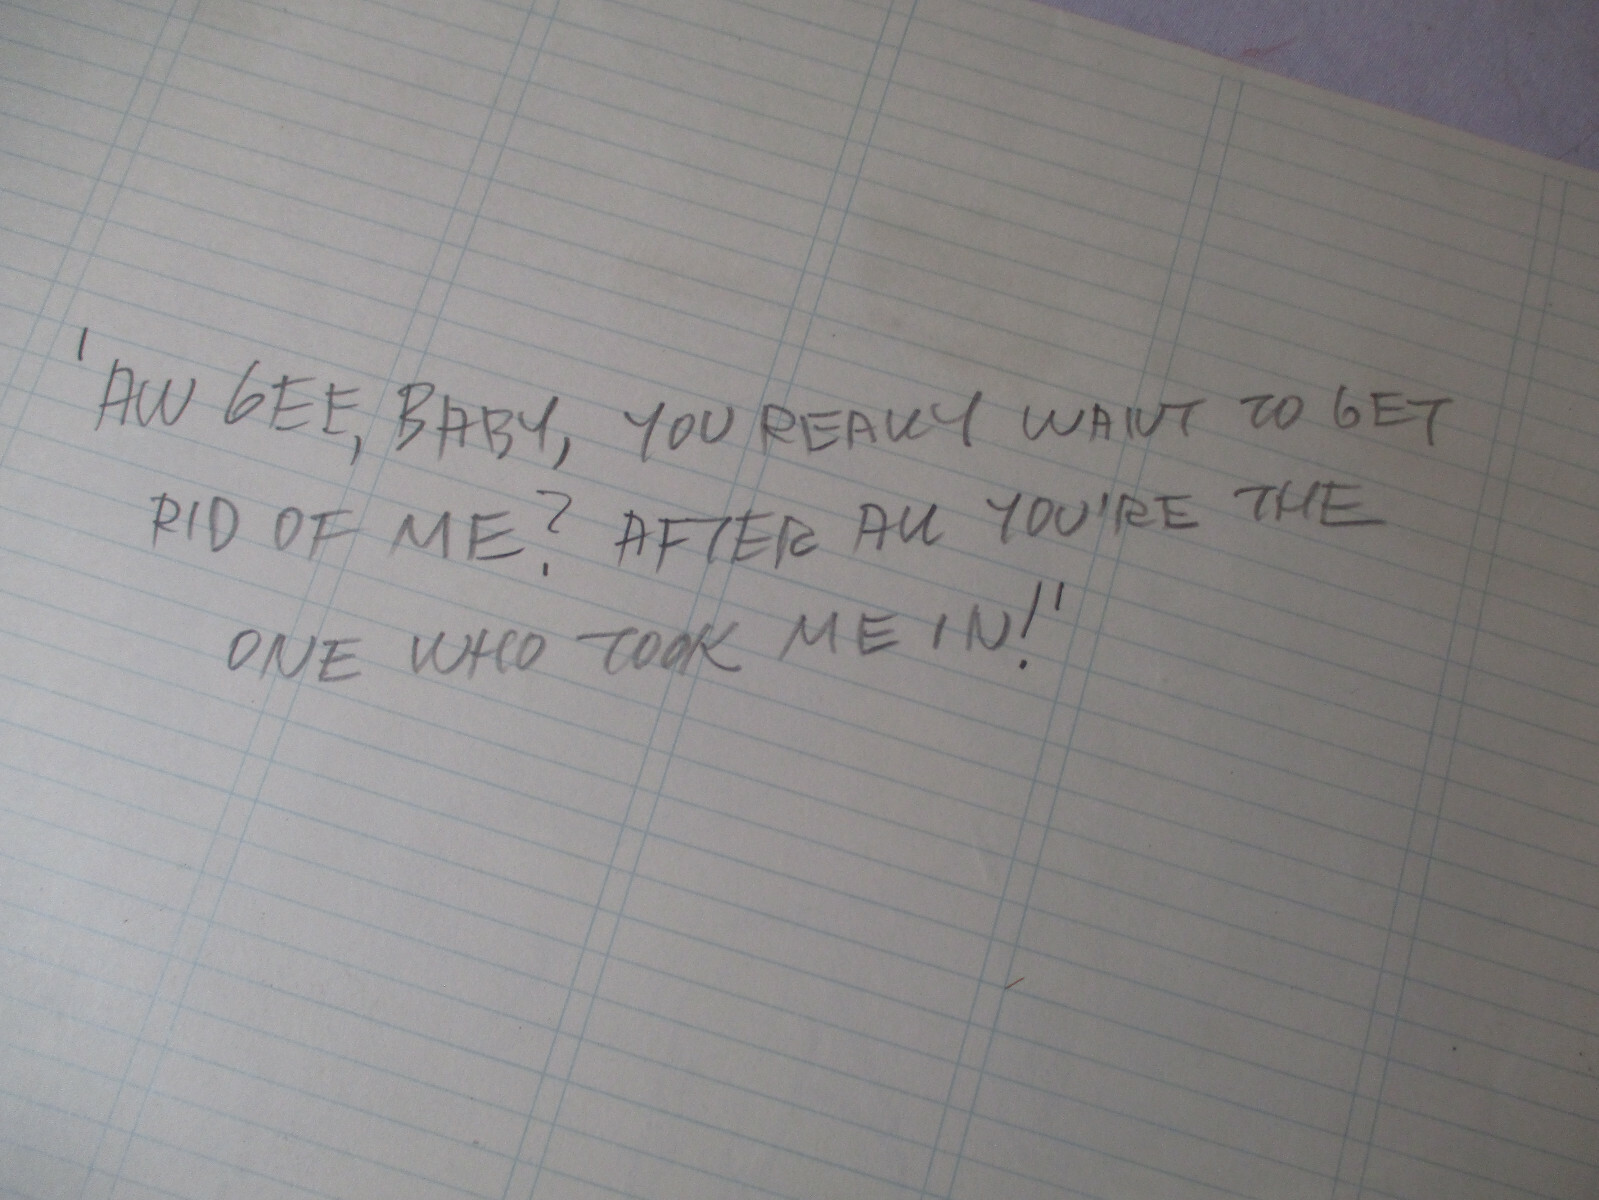 'AW GEE, BABY, YOU REALLY WANT TO GET
RID OF ME? AFTER ALL YOU'RE THE
ONE WHO TOOK ME IN!'